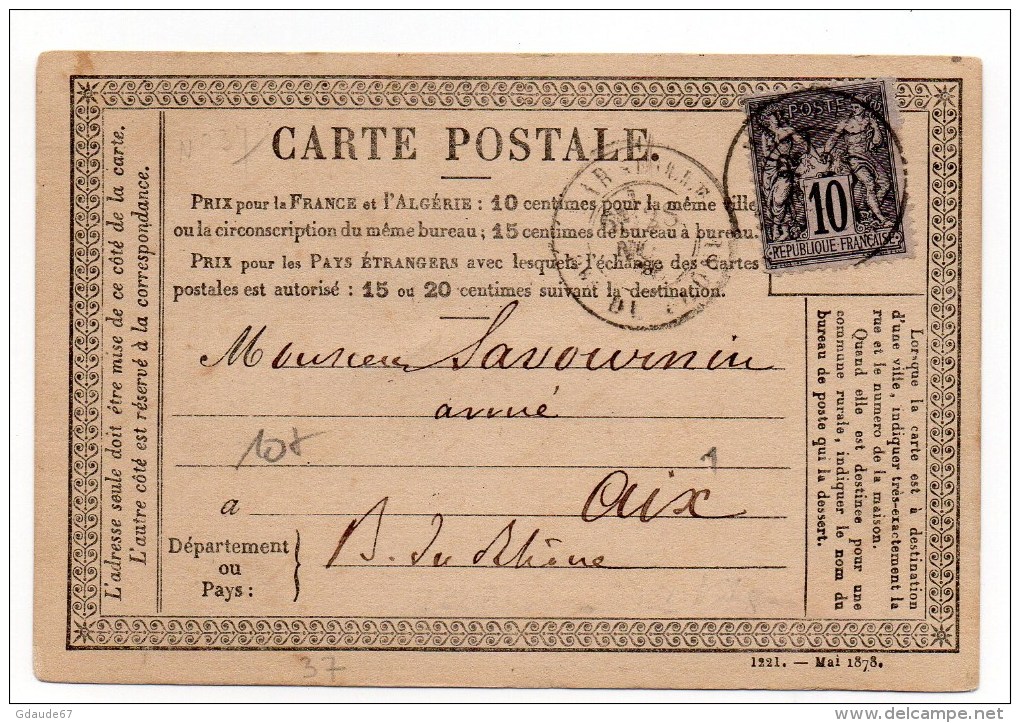 CARTE POSTALE.
PRIX pour la FRANCE et l'ALGÉRIE : 10 centimes pour la même ville
ou la circonscription du même bureau ; 15 centimes de bureau à bureau.
PRIX pour les PAYS ÉTRANGERS avec lesquels l'échange des Cartes
postales est autorisé : 15 ou 20 centimes suivant la destination.
POSTE
10
REPUBLIQUE-FRANÇAISE
MARSEILLE
DU RHONE
Monsieur Savournin
avoué
10 F
1
à Aix
Département
ou
Pays :
B. du Rhône
L'adresse seule doit être mise de ce côté de la carte.
L'autre côté est réservé à la correspondance.
Lorsque la carte est à destination
d'une ville, indiquer très-exactement la
rue et le numero de la maison.
Quand elle est destinée pour une
commune rurale, indiquer le nom du
bureau de poste qui la dessert.
37
1221. — Mai 1878.
Gdaude67
delcampe.net